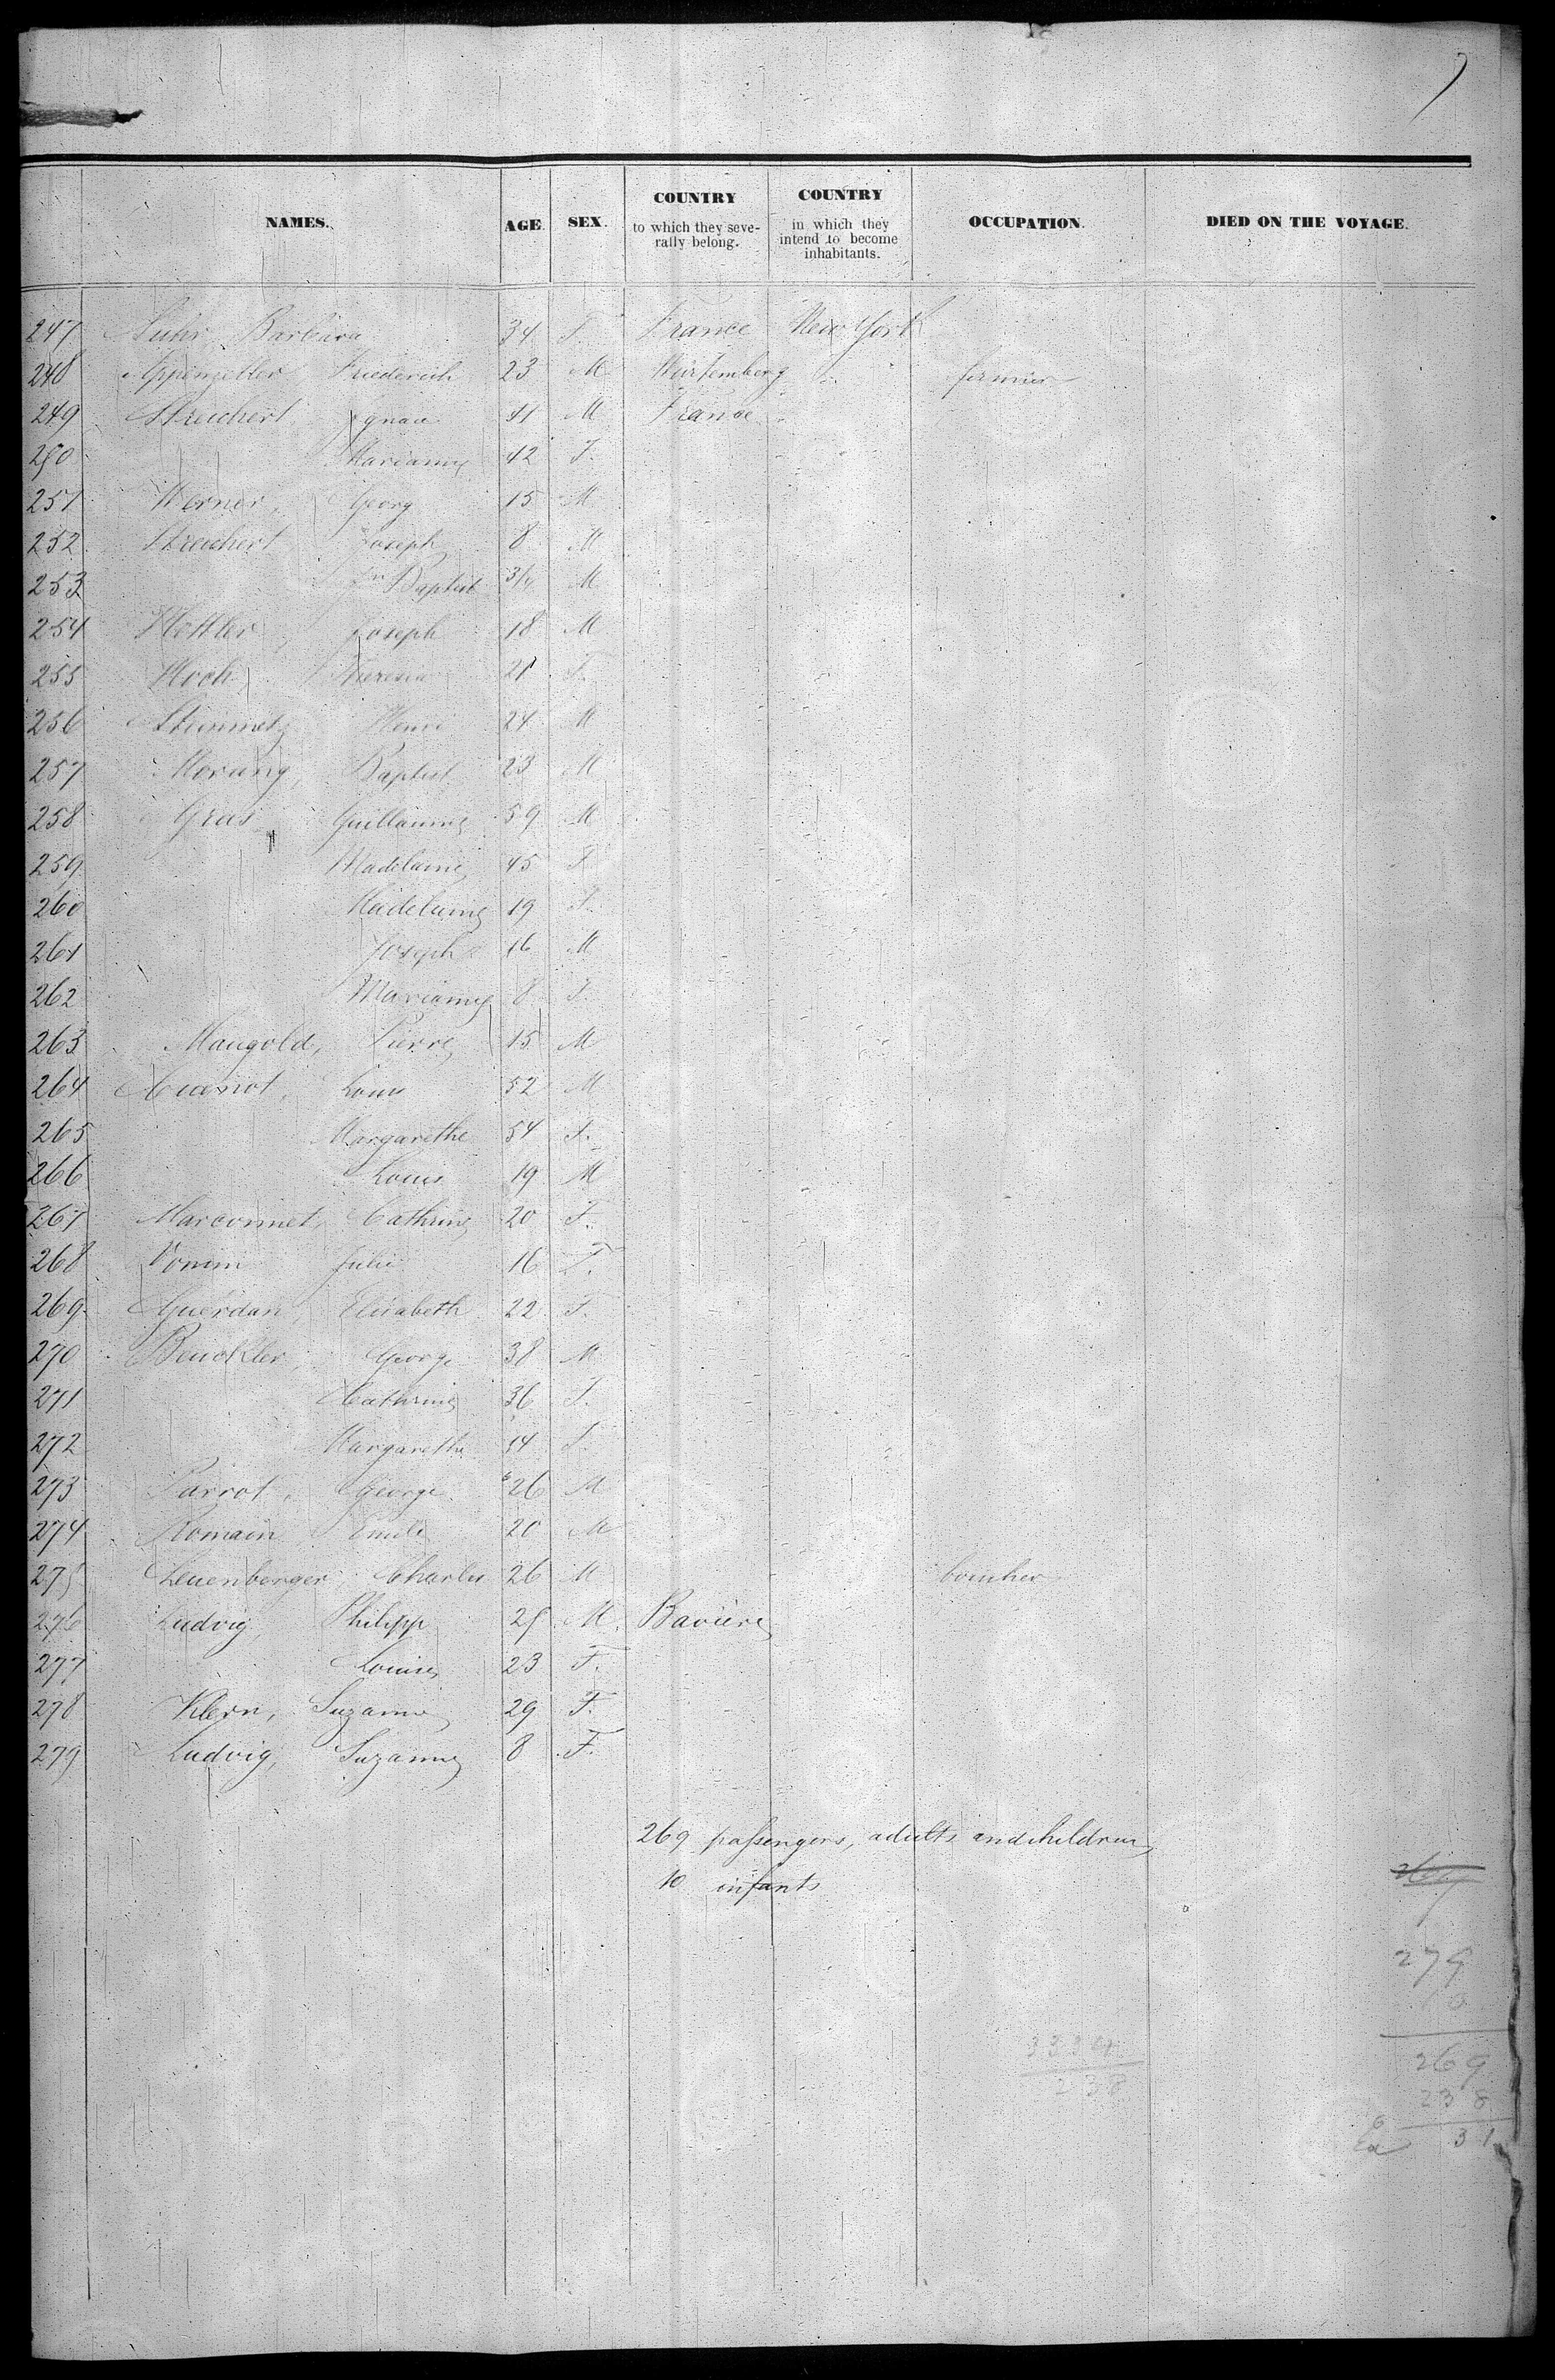 NAMES. AGE. SEX. COUNTRY to which they severally belong. COUNTRY in which they intend to become inhabitants. OCCUPATION. DIED ON THE VOYAGE.
247 Suhr, Barbara 34 F. France New York
248 Appenzeller Friederich 23 M Würtemberg " fermier
249 Streichert Ignace 41 M France
250 Marianne 42 F.
251 Werner, Georg 15 M
252 Streichert Joseph 8 M
253 Jn Baptist 3/4 M
254 Hettler, Joseph 18 M
255 Koch Theresia 21 F.
256 Steinmetz Henri 24 M
257 Morang, Baptist 23 M
258 Gras Guillaume 59 M
259 Madelaine 45 F
260 Madelaine 19 F.
261 Joseph 16 M
262 Marianne 8 F.
263 Mangold, Pierre 15 M
264 Cuenot, Louis 52 M
265 Margarethe 54 F.
266 Louis 19 M
267 Marconnet, Cathrine 20 F.
268 Julie 16 F.
269 Guerdan, Elisabeth 22 F.
270 Beuckler, George 38 M
271 Cathrine 36 F.
272 Margarethe 14 F.
273 Parrot, George 26 M
274 Romain Emile 20 M
275 Leuenberger, Charles 26 M boucher
276 Ludvig, Philipp 25 M. Baviere
277 Louise 23 F.
278 Klein, Suzanne 29 F.
279 Ludvig, Suzanne 8 F.
269 passengers, adults and children
10 infants
279
10
269
238
31
238